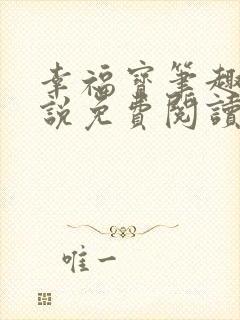 幸福寶筆趣
說免費閱讀
唯一